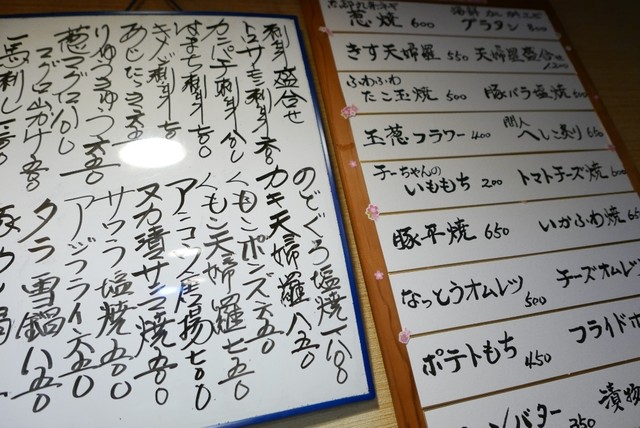 刺身盛合せ
トロサーモン刺身
カンパチ刺身
はまち刺身
キメジ刺身
あじたたき六五〇
りゅうきゅう六五〇
葱マグロ
マグロ山かけ
馬刺し
のどぐろ塩焼一八〇〇
カキ天婦羅八五〇
くもこポンズ六五〇
くもこ天婦羅七五〇
アンコウ唐揚七〇〇
ヌカ漬サンマ焼五〇〇
サワラ塩焼五〇〇
アジフライ六五〇
タラ雪鍋八五〇
葱焼 600
グラタン 800
きす天婦羅 550
天婦羅盛合せ 1200
ふわふわ
たこ玉焼 500
豚バラ塩焼
玉葱フラワー 400
間人
へしこ炙り 650
チーちゃんの
いももち 200
トマトチーズ焼
豚平焼 650
いかふわ焼
なっとうオムレツ 500
チーズオムレ
ポテトもち 450
フライド
ンバター 350
漬物